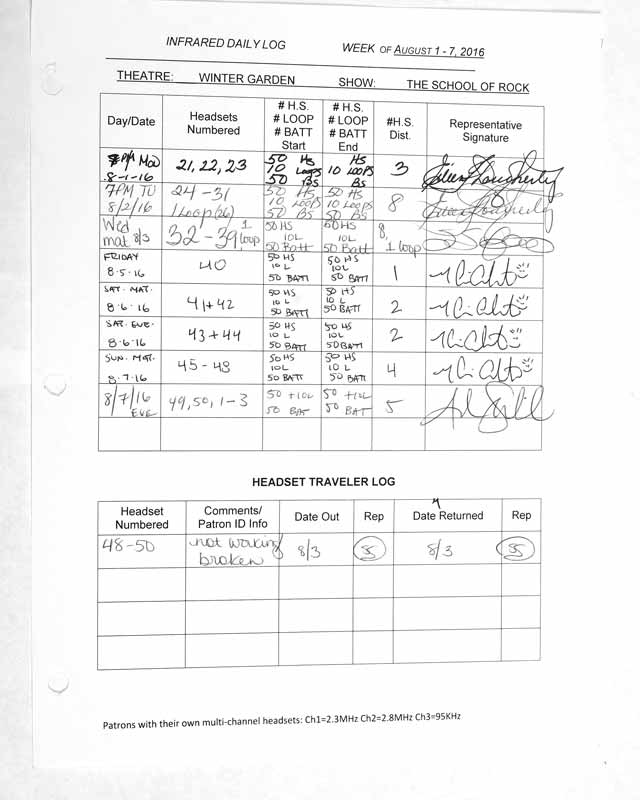 INFRARED DAILY LOG WEEK OF AUGUST 1 - 7, 2016
THEATRE: WINTER GARDEN SHOW: THE SCHOOL OF ROCK
Day/Date Headsets Numbered # H.S. # LOOP # BATT Start # H.S. # LOOP # BATT End #H.S. Dist. Representative Signature
PM MON 8-1-16 21, 22, 23 50 HS 10 Loops 50 BS HS 10 LOOPS BS 3
7PM TU 8/2/16 24-31 1 Loop (26) 50 HS 10 LOOPS 50 BS 50 HS 10 LOOPS 50 BS 8
Wed mat 8/3 32-39, 1 loop 50 HS 10L 50 Batt 50 HS 10L 50 Batt 8, 1 loop
FRIDAY 8.5.16 40 50 HS 10 L 50 BATT 50 HS 10L 50 BATT 1
SAT. MAT. 8.6.16 41+42 50 HS 10 L 50 BATT 50 HS 10 L 50 BATT 2
SAT. EVE. 8.6.16 43+44 50 HS 10L 50 BATT 50 HS 10L 50 BATT 2
SUN. MAT. 8.7.16 45-48 50 HS 10L 50 BATT 50 HS 10 L 50 BATT 4
8/7/16 EVE 49, 50, 1-3 50 +10L 50 BAT 50 +10L 50 BAT 5
HEADSET TRAVELER LOG
Headset Numbered Comments/ Patron ID Info Date Out Rep Date Returned Rep
48-50 not working/ broken 8/3 8/3
Patrons with their own multi-channel headsets: Ch1=2.3MHz Ch2=2.8MHz Ch3=95KHz